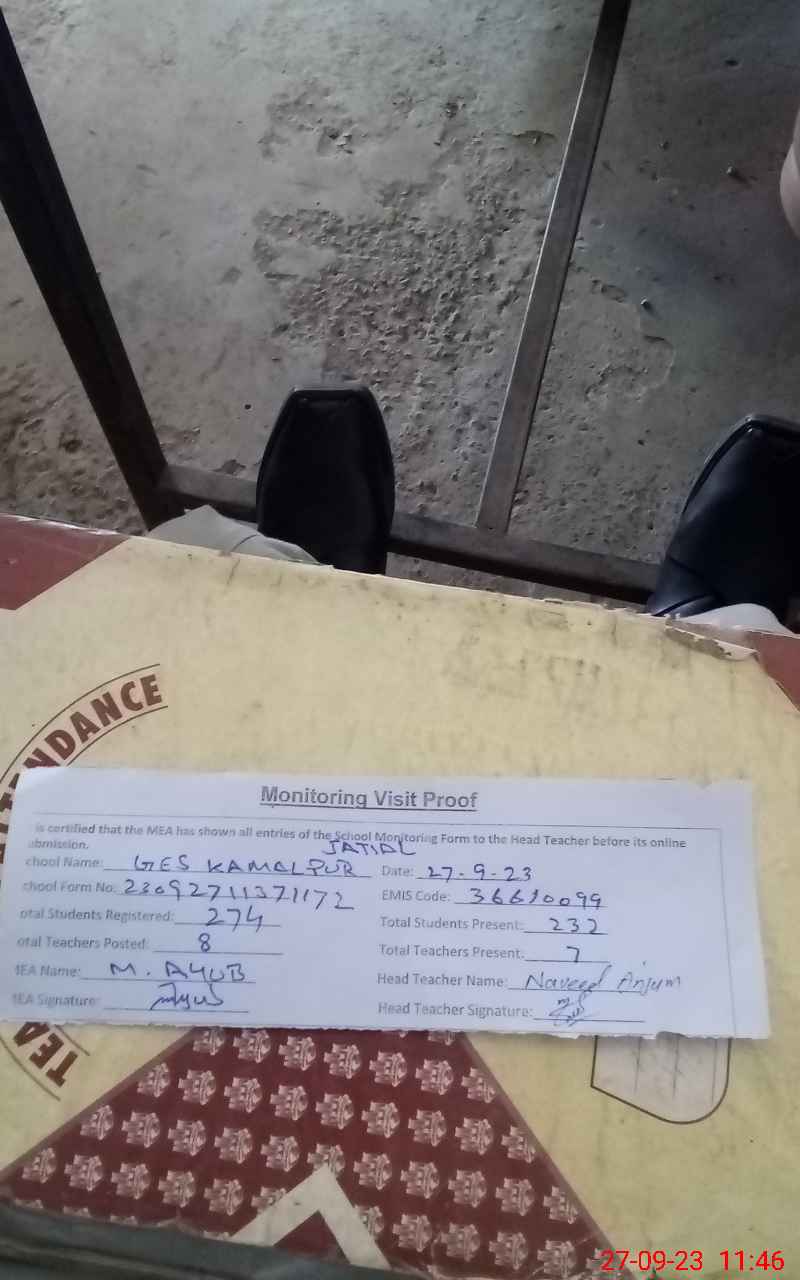 TTENDANCE
Monitoring Visit Proof
is certified that the MEA has shown all entries of the School Monitoring Form to the Head Teacher before its online
ubmission.
JATIAL
chool Name: GES KAMALPUR Date: 27-9-23
chool Form No: 23092711371172 EMIS Code: 36610099
otal Students Registered: 274 Total Students Present: 232
otal Teachers Posted: 8 Total Teachers Present: 7
MEA Name: M. AYUB Head Teacher Name: Naveed Anjum
MEA Signature: Head Teacher Signature:
TEA
27-09-23 11:46